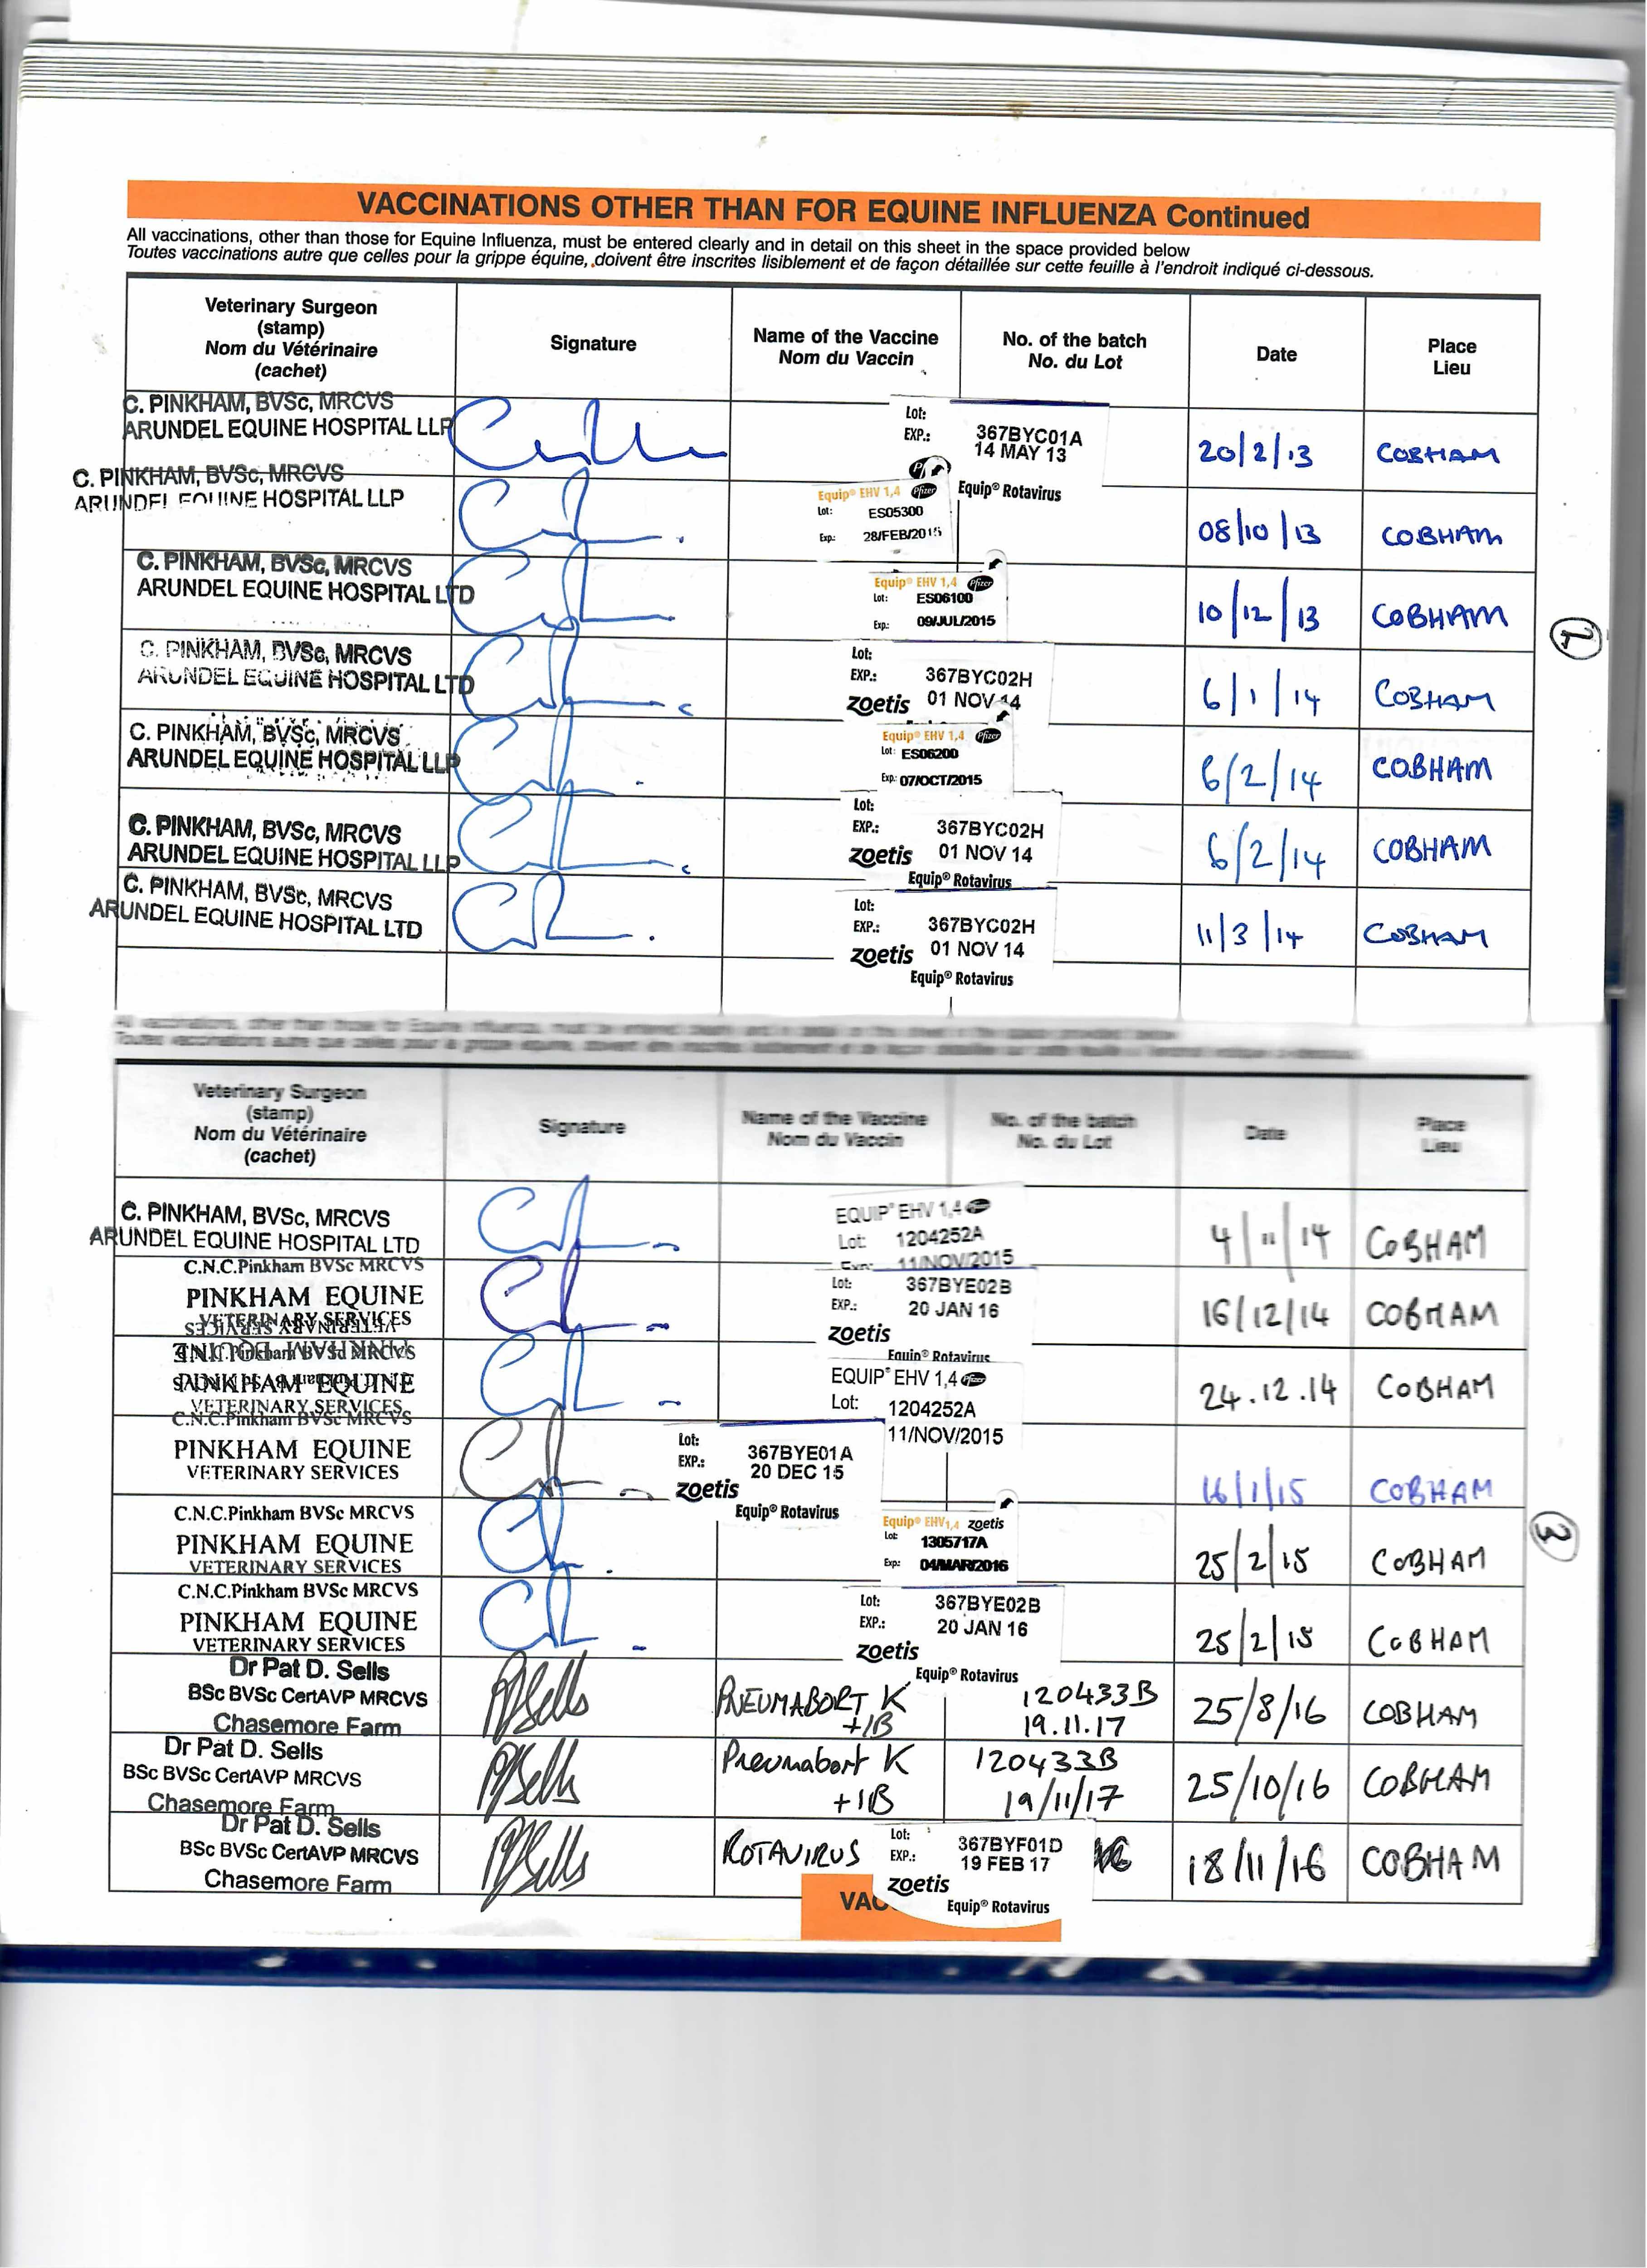 VACCINATIONS OTHER THAN FOR EQUINE INFLUENZA Continued
All vaccinations, other than those for Equine Influenza, must be entered clearly and in detail on this sheet in the space provided below
Toutes vaccinations autre que celles pour la grippe équine, doivent être inscrites lisiblement et de façon détaillée sur cette feuille à l'endroit indiqué ci-dessous.
Veterinary Surgeon
(stamp)
Nom du Vétérinaire
(cachet)
Signature
Name of the Vaccine
Nom du Vaccin
No. of the batch
No. du Lot
Date
Place
Lieu
C. PINKHAM, BVSc, MRCVS
ARUNDEL EQUINE HOSPITAL LLP
Lot:
EXP.: 367BYC01A
14 MAY 13
Equip® Rotavirus
20/2/13
COBHAM
C. PINKHAM, BVSc, MRCVS
ARUNDEL EQUINE HOSPITAL LLP
Equip® EHV 1,4 Pfizer
Lot: ES05300
Exp.: 28/FEB/2015
08/10/13
COBHAM
C. PINKHAM, BVSc, MRCVS
ARUNDEL EQUINE HOSPITAL LTD
Equip® EHV 1,4 Pfizer
Lot: ES06100
Exp.: 09/JUL/2015
10/12/13
COBHAM
2
C. PINKHAM, BVSc, MRCVS
ARUNDEL EQUINE HOSPITAL LTD
Lot:
EXP.: 367BYC02H
zoetis 01 NOV 14
6/1/14
COBHAM
C. PINKHAM, BVSc, MRCVS
ARUNDEL EQUINE HOSPITAL LLP
Equip® EHV 1,4 Pfizer
Lot: ES06200
Exp.: 07/OCT/2015
6/2/14
COBHAM
C. PINKHAM, BVSc, MRCVS
ARUNDEL EQUINE HOSPITAL LLP
Lot:
EXP.: 367BYC02H
zoetis 01 NOV 14
Equip® Rotavirus
6/2/14
COBHAM
C. PINKHAM, BVSc, MRCVS
ARUNDEL EQUINE HOSPITAL LTD
Lot:
EXP.: 367BYC02H
zoetis 01 NOV 14
Equip® Rotavirus
11/3/14
COBHAM
All vaccinations, other than those for Equine Influenza, must be entered clearly and in detail on this sheet in the space provided below
Toutes vaccinations autre que celles pour la grippe équine, doivent être inscrites lisiblement et de façon détaillée sur cette feuille à l'endroit indiqué ci-dessous.
Veterinary Surgeon
(stamp)
Nom du Vétérinaire
(cachet)
Signature
Name of the Vaccine
Nom du Vaccin
No. of the batch
No. du Lot
Date
Place
Lieu
C. PINKHAM, BVSc, MRCVS
ARUNDEL EQUINE HOSPITAL LTD
EQUIP® EHV 1,4
Lot: 1204252A
Exp: 11/NOV/2015
4/11/14
COBHAM
C.N.C.Pinkham BVSc MRCVS
PINKHAM EQUINE
VETERINARY SERVICES
Lot: 367BYE02B
EXP.: 20 JAN 16
zoetis
Equip® Rotavirus
16/12/14
COBHAM
PINKHAM EQUINE
VETERINARY SERVICES
EQUIP® EHV 1,4
Lot: 1204252A
11/NOV/2015
24.12.14
COBHAM
C.N.C.Pinkham BVSc MRCVS
PINKHAM EQUINE
VETERINARY SERVICES
Lot:
EXP.: 367BYE01A
20 DEC 15
zoetis
Equip® Rotavirus
16/1/15
COBHAM
C.N.C.Pinkham BVSc MRCVS
PINKHAM EQUINE
VETERINARY SERVICES
Equip® EHV1,4 zoetis
Lot: 1305717A
Exp: 04/MAR/2016
25/2/15
COBHAM
3
C.N.C.Pinkham BVSc MRCVS
PINKHAM EQUINE
VETERINARY SERVICES
Lot: 367BYE02B
EXP.: 20 JAN 16
zoetis
Equip® Rotavirus
25/2/15
COBHAM
Dr Pat D. Sells
BSc BVSc CertAVP MRCVS
Chasemore Farm
PNEUMABORT K
+1B
120433B
19.11.17
25/8/16
COBHAM
Dr Pat D. Sells
BSc BVSc CertAVP MRCVS
Chasemore Farm
Pneumabort K
+1B
120433B
19/11/17
25/10/16
COBHAM
Dr Pat D. Sells
BSc BVSc CertAVP MRCVS
Chasemore Farm
ROTAVIRUS
Lot: 367BYF01D
EXP.: 19 FEB 17
zoetis
Equip® Rotavirus
18/11/16
COBHAM
VAC